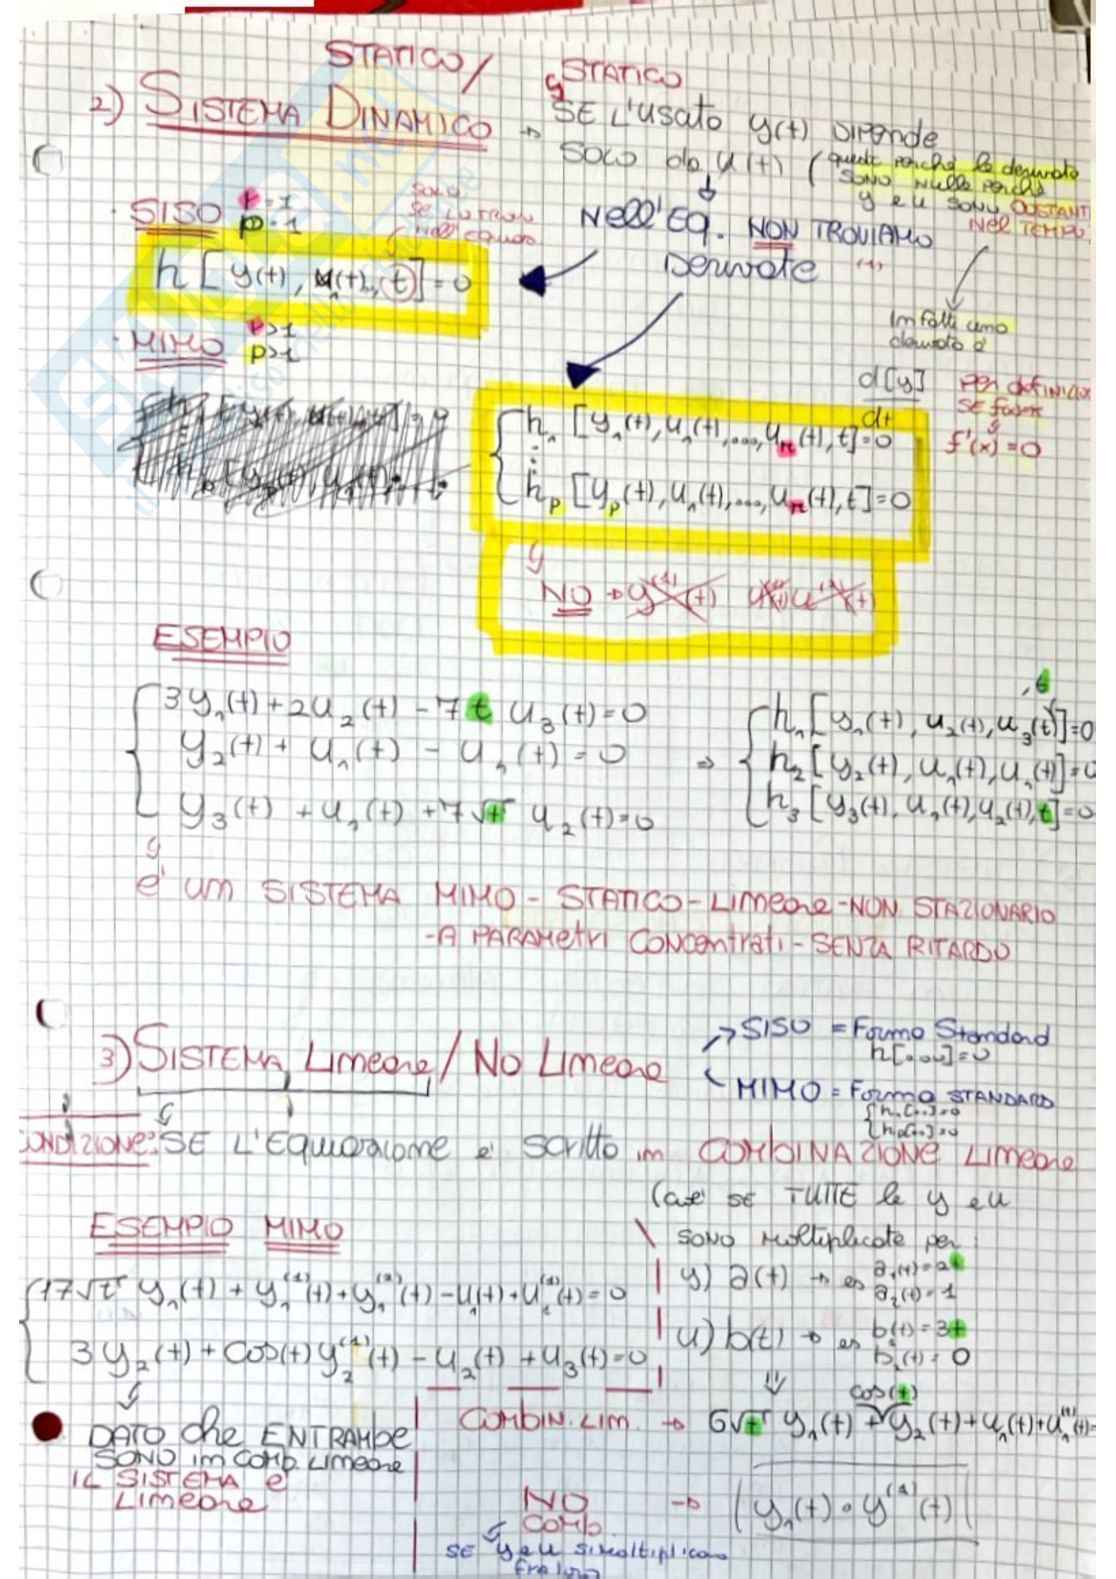 STATICO/
2) SISTEMA DINAMICO → STATICO
SE L'usato y(t) DIPENDE
SOLO da u(t) (quest perché le derivate
SONO Nulle perché
y e u SONO COSTANTI
Nel TEMPO
Nell'Eq. NON TROVIAMO
Derivate (1)
· SISO r=1
p=1
SOLO
SE LO TROVI
h [y(t), u(t), t]=0
· MIMO r>1
p>1
Infatti una
derivata è
d[y]
dt
per definizio
SE
f'(x)=0
{ h₁ [y₁(t), u₁(t), ..., uᵣ(t), t]=0
⋮
hₚ [yₚ(t), u₁(t), ..., uᵣ(t), t]=0
NO → y⁽¹⁾(t) u⁽¹⁾(t)
ESEMPIO
{ 3y₁(t)+2u₂(t)-7t u₃(t)=0
y₂(t)+u₁(t)-u₁(t)=0
y₃(t)+u₁(t)+7√t u₂(t)=0
⇒ { h₁[y₁(t), u₂(t), u₃(t), t]=0
h₂[y₂(t), u₁(t), u₁(t)]=0
h₃[y₃(t), u₁(t), u₂(t), t]=0
è un SISTEMA MIMO - STATICO - Lineare - NON STAZIONARIO
- A PARAMetri CONCentrati - SENZA RITARDO
3) SISTEMA Lineare / No Lineare
→ SISO = Forma Standard
h[...]=0
→ MIMO = Forma STANDARD
{h₁[..]=0
{hₚ[..]=0
CONDIZIONE: SE L'Equazione è scritta in COMBINAZIONE Lineare
(cioè SE TUTTE le y e u
SONO moltiplicate per
y) a(t) → es a₁(t)=2t
a₂(t)=1
u) b(t) → es b(t)=3t
b₁(t)=0
ESEMPIO MIMO
{ 17√t y₁(t)+y₁⁽¹⁾(t)+y₁⁽²⁾(t)-u₁(t)+u₁⁽¹⁾(t)=0
3y₂(t)+cos(t)y₂⁽¹⁾(t)-u₂(t)+u₃(t)=0
DATO che ENTRAMBE
SONO in COMB. Lineare
IL SISTEMA è
Lineare
COMBIN. Lin. → 6√t y₁(t) + cos(t) y₂(t)+u₁(t)+u₁⁽¹⁾(t)=
NO
COMB → (y₁(t)·y⁽¹⁾(t)
SE y e u si moltiplicano
fra loro